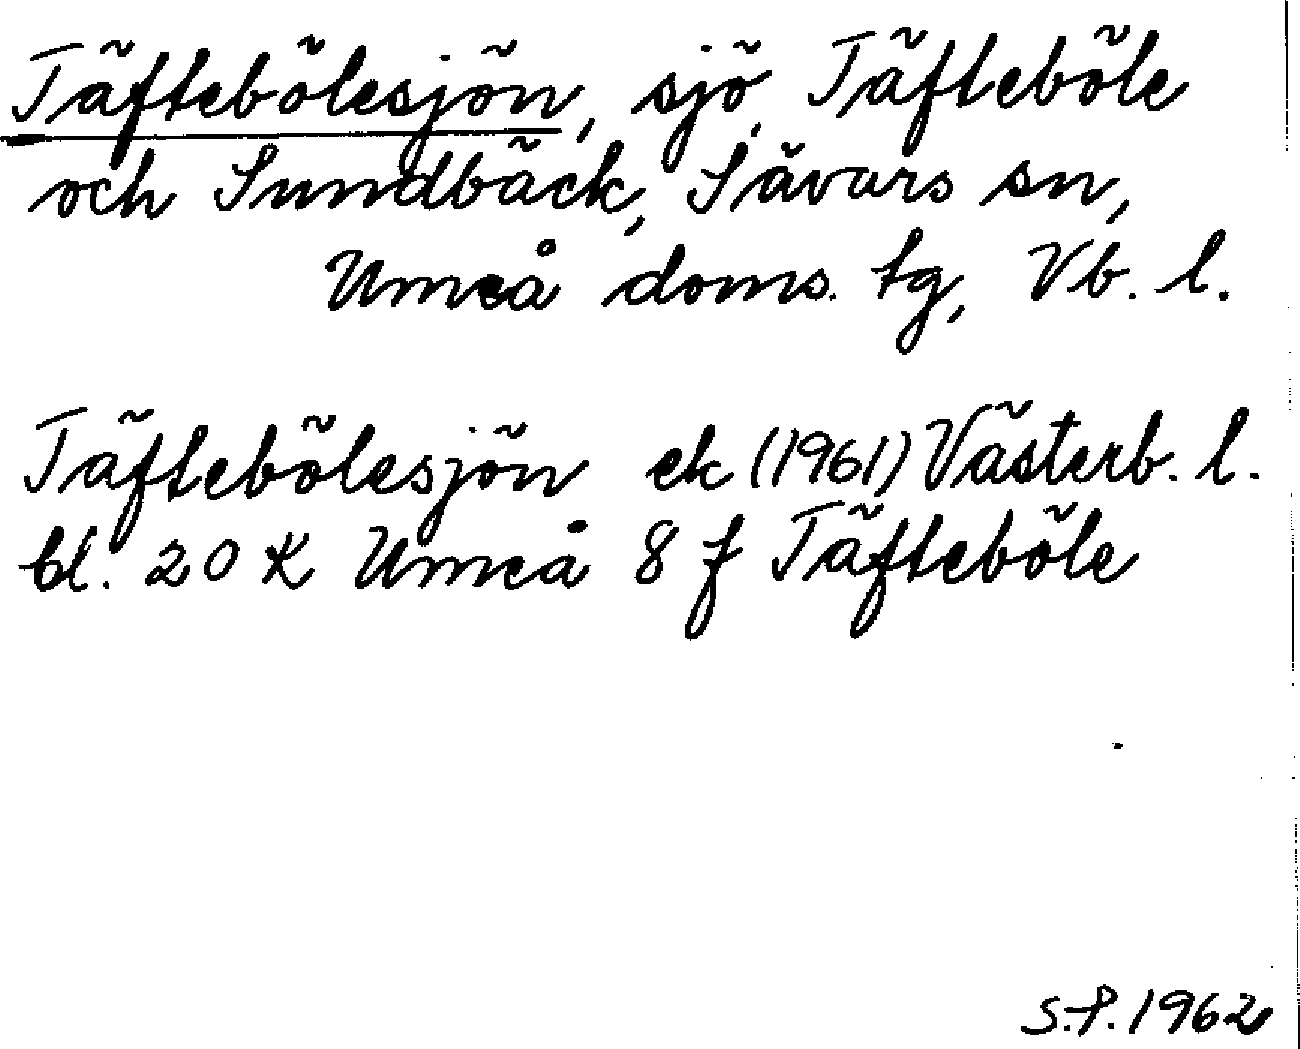 Täftebölesjön, sjö, Täfteböle
och Sundbäck, Sävars sn,
Umeå doms. tg, Vb. l.
Täftebölesjön ek (1961) Västerb. l.
bl. 20 K Umeå 8 f Täfteböle
S.P. 1962